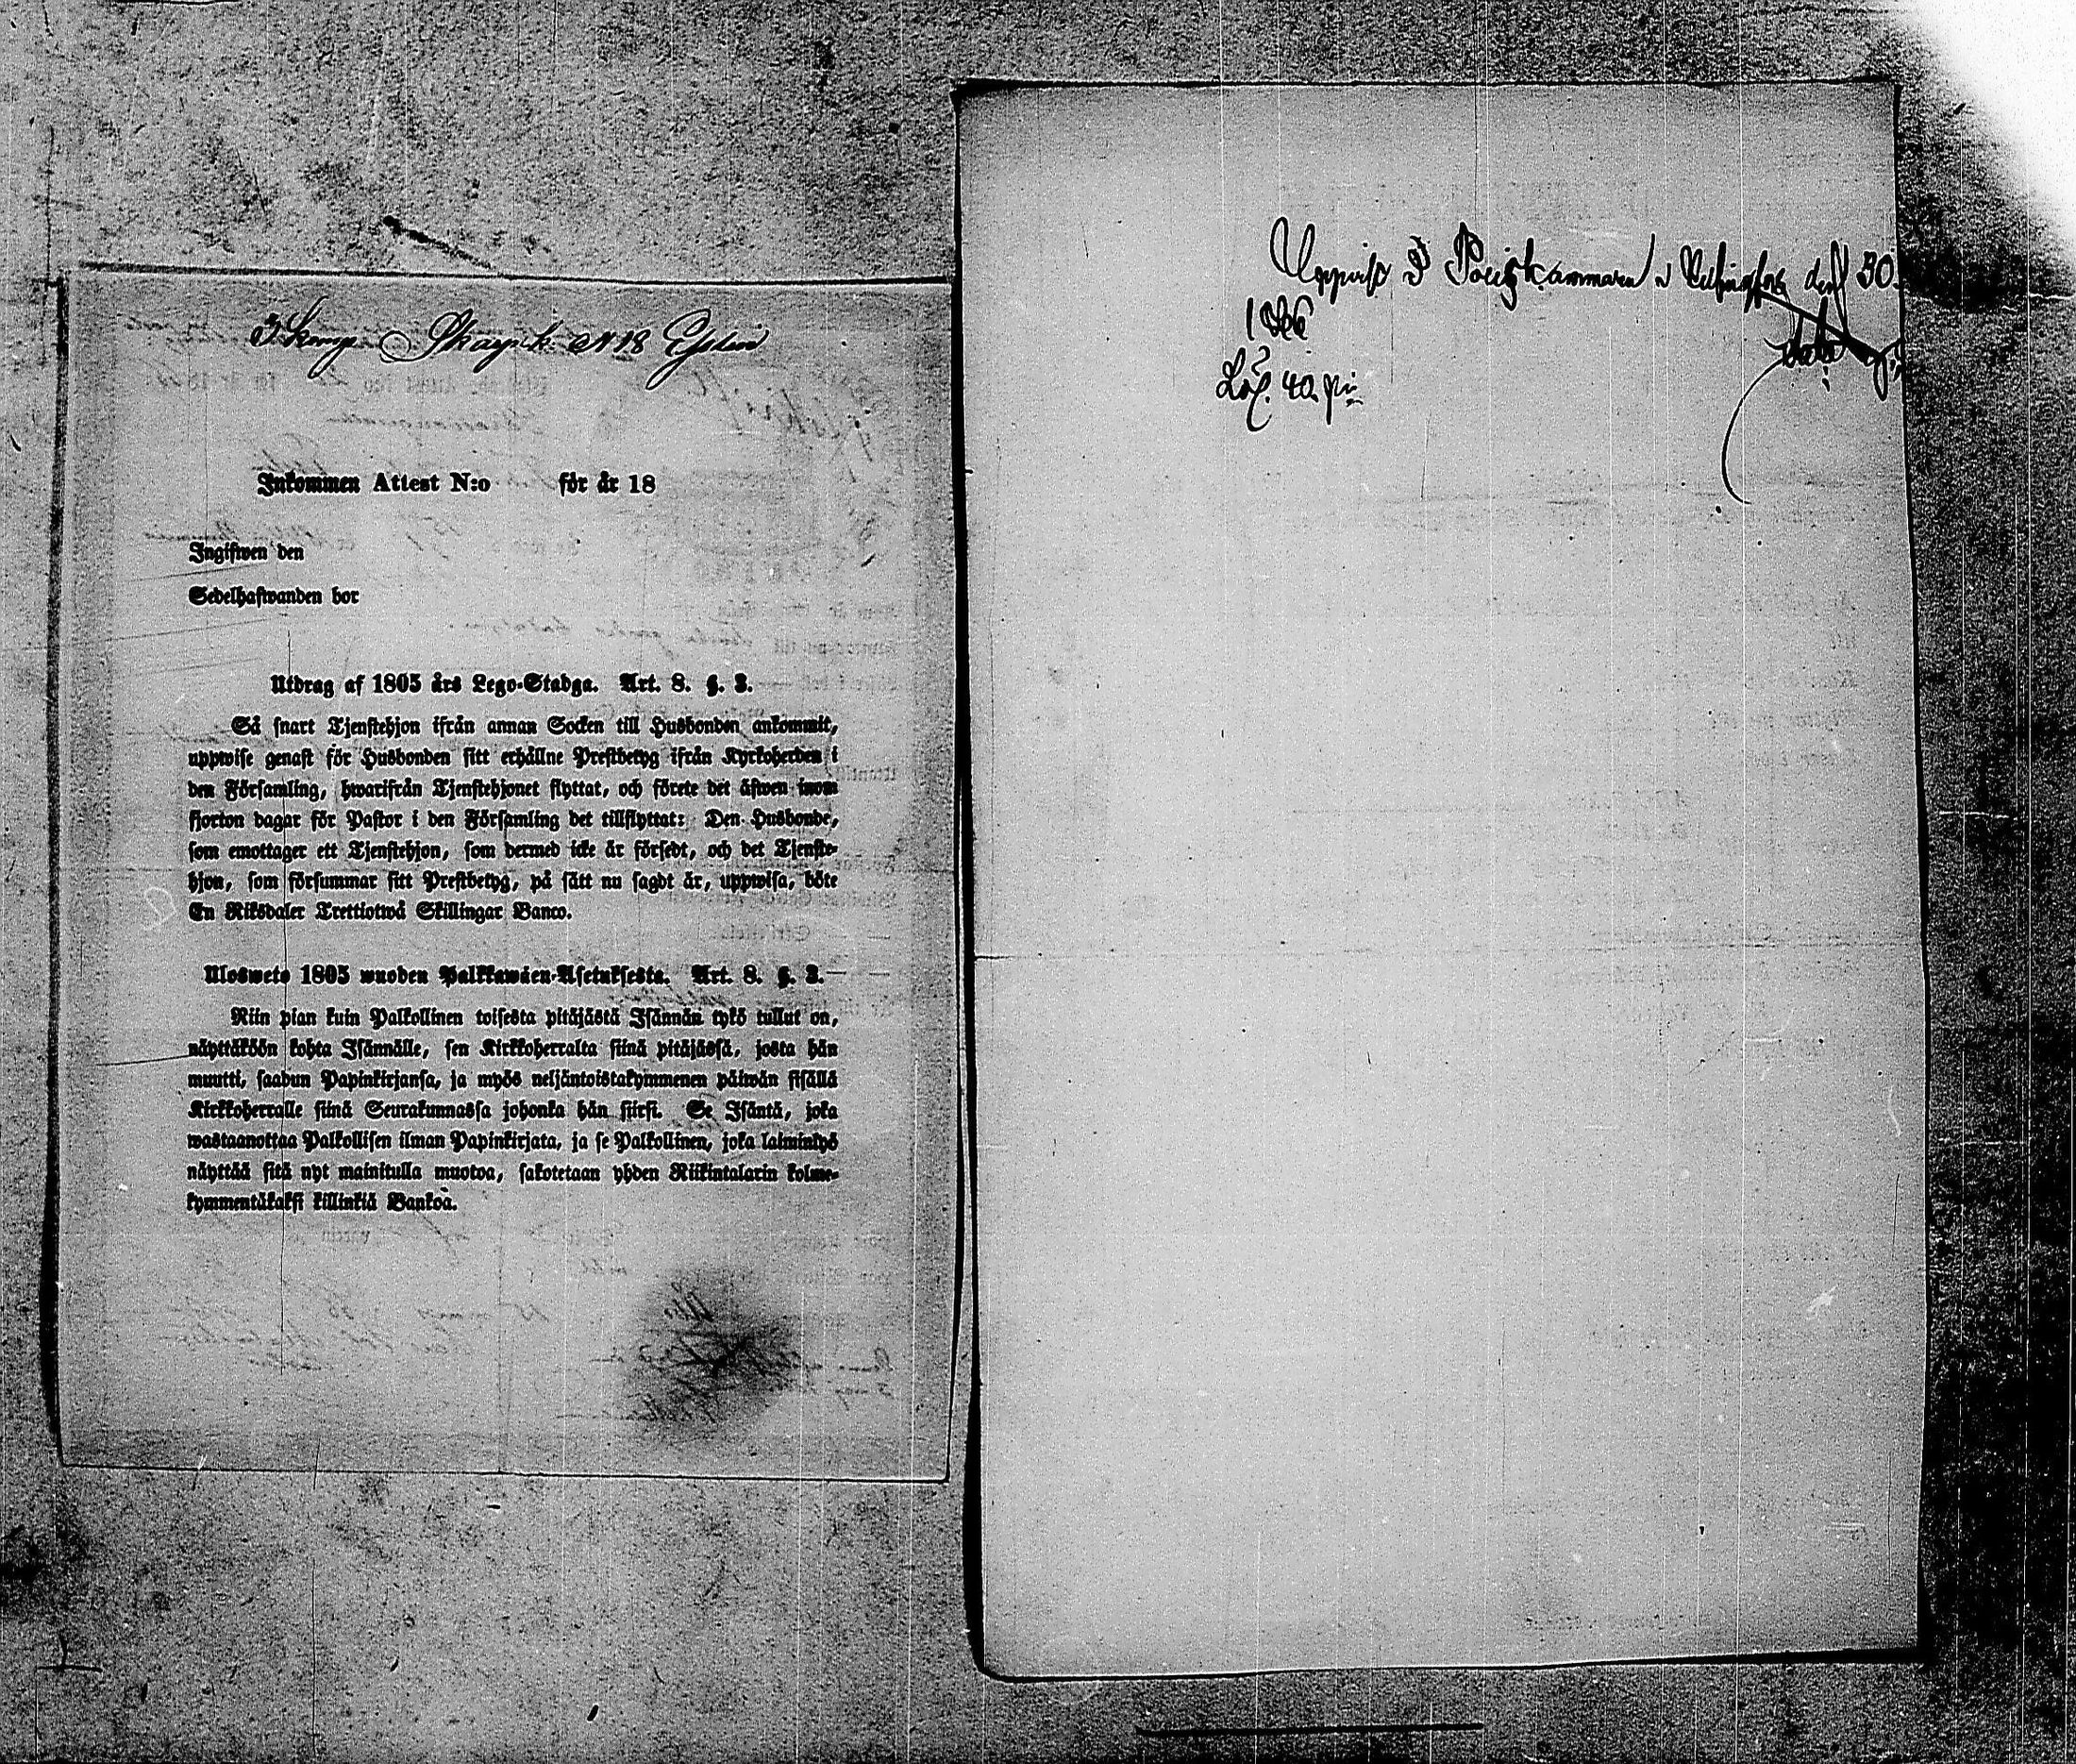 3 komp. Skarpsk. N 18
Inkommen Attest N:o för år 18
Ingifwen den
Sedelhafwanden bor
Utdrag af 1805 års Lego-Stadga. Art. 8. §. 2.
Så snart Tjenstehjon ifrån annan Socken till Husbonden ankommit,
uppwise genast för Husbonden sitt erhållne Prestbetyg ifrån Kyrkoherden i
den Församling, hwarifrån Tjenstehjonet flyttat, och förete det äfwen inom
fjorton dagar för Pastor i den Församling det tillflyttat: Den Husbonde,
som emottager ett Tjenstehjon, som dermed icke är försedt, och det Tjenste-
hjon, som försummar sitt Prestbetyg, på sätt nu sagdt är, uppwisa, böte
En Riksdaler Trettiotwå Skillingar Banco.
Ulosweto 1805 wuoden Palkkawäen-Asetuksesta. Art. 8. §. 2.
Niin pian kuin Palkollinen toisesta pitäjästä Isännän tykö tullut on,
näyttäköön kohta Isännälle, sen Kirkkoherralta siinä pitäjässä, josta hän
muutti, saadun Papinkirjansa, ja myös neljäntoistakymmenen päiwän sisällä
Kirkkoherralle siinä Seurakunnassa johonka hän siirsi. Se Isäntä, joka
wastaanottaa Palkollisen ilman Papinkirjata, ja se Palkollinen, joka laiminlyö
näyttää sitä nyt mainitulla muotoa, sakotetaan yhden Riikintalarin kolme-
kymmentäkaksi killinkiä Bankoa.
Uppvist I Poliskammaren i Helsingfors den 30.
40. pi